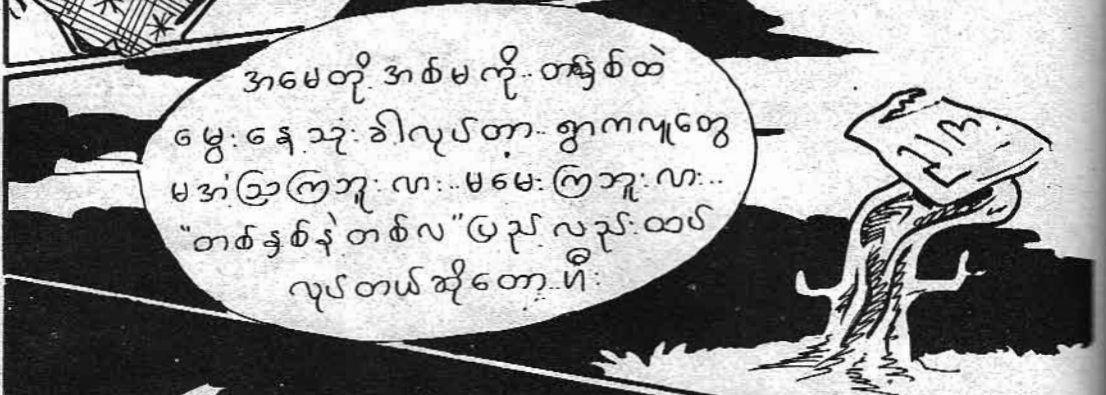 အမေတို့ အစ်မကို.. တစ်နှစ်ထဲ
မွေးနေ့သုံးခါလုပ်တာ.. ရွာကလူတွေ
မအံ့သြကြဘူးလား.. မမေးကြဘူးလား..
"တစ်နှစ်နဲ့တစ်လ" ပြည့်လည်းထပ်
လုပ်တယ်ဆိုတော့.. ဟီး